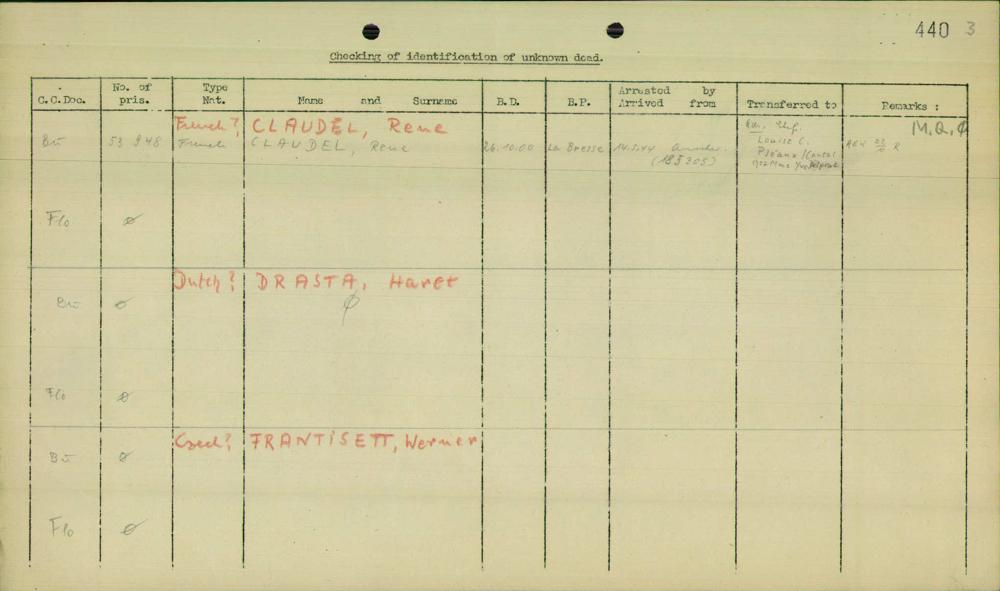 440 3
Checking of identification of unknown dead.
C.C.Doc. No. of pris. Type Nat. Name and Surname B.D. B.P. Arrested by Arrived from Transferred to Remarks :
French? CLAUDEL, Rene M.Q. ø
Bu 53 948 French CLAUDEL, Rene 26.10.00 La Bresse 14.5.44
(185305)
Louise C.
Flo ø
Dutch? DRASTA, Haret
Bu ø ø
Flo ø
Czech? FRANTISETT, Werner
Bu ø
Flo ø